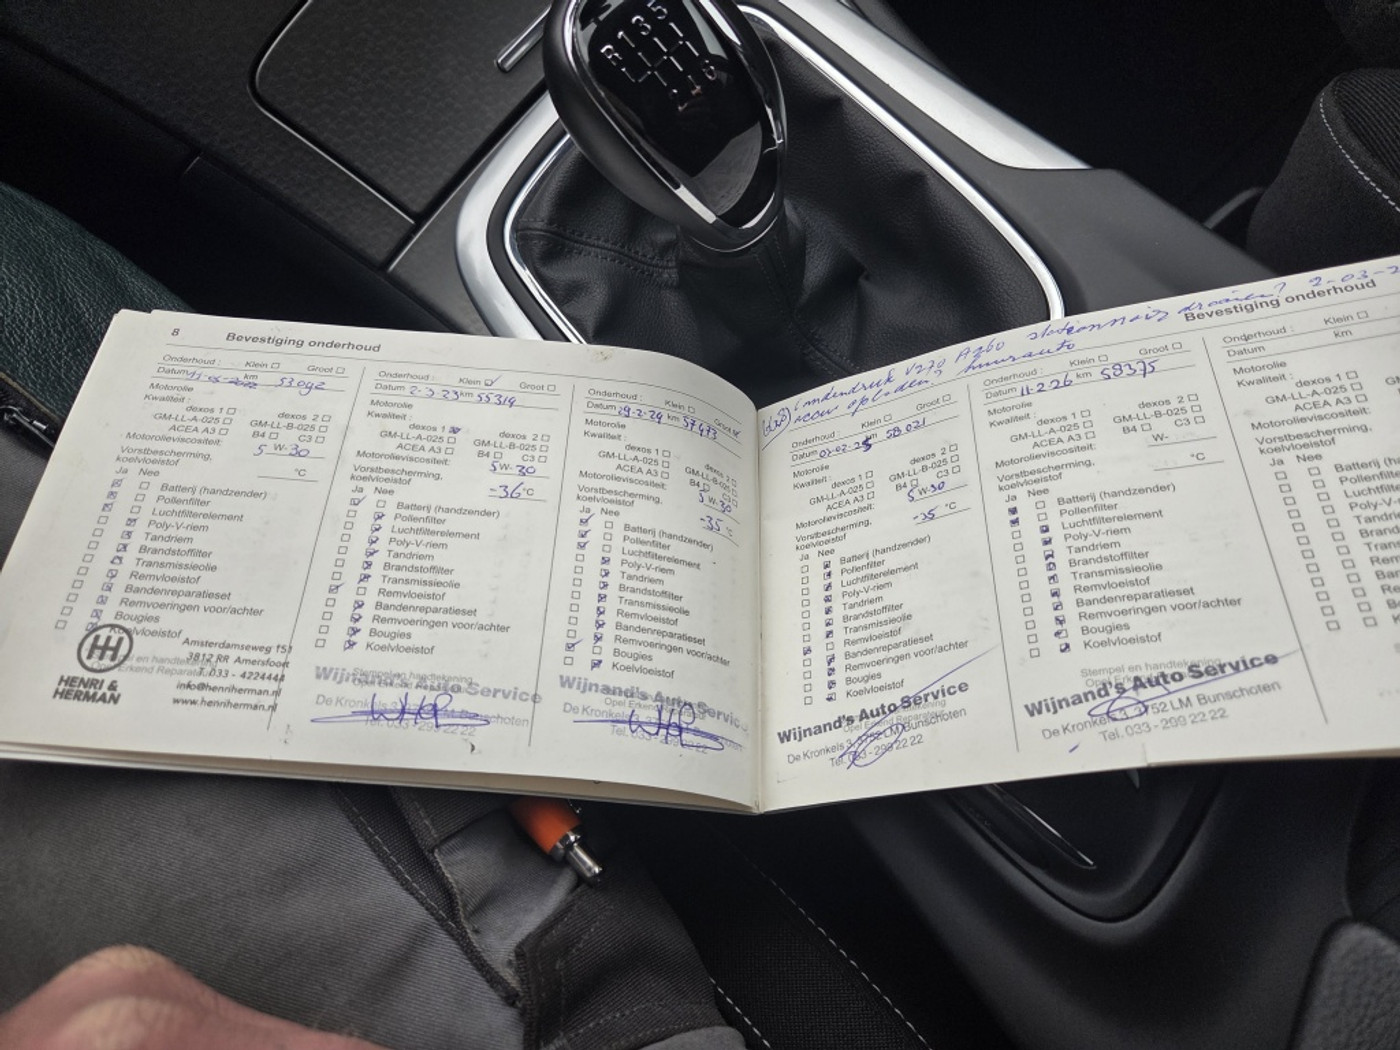 R 1 3 5
2 4 6
8 Bevestiging onderhoud
Onderhoud : Klein ☐ Groot ☐
Datum 11-05-2022 km 53092
Motorolie
Kwaliteit :
dexos 1 ☐ dexos 2 ☐
GM-LL-A-025 ☐ GM-LL-B-025 ☐
ACEA A3 ☐ B4 ☐ C3 ☐
Motorolieviscositeit: 5 W- 30
Vorstbescherming,
koelvloeistof °C
Ja Nee
Batterij (handzender)
Pollenfilter
Luchtfilterelement
Poly-V-riem
Tandriem
Brandstoffilter
Transmissieolie
Remvloeistof
Bandenreparatieset
Remvoeringen voor/achter
Bougies
Koelvloeistof
HENRI &
HERMAN
Amsterdamseweg 151
3812 RR Amersfoort
T. 033 - 4224444
info@henriherman.nl
www.henriherman.nl
Onderhoud : Klein ☑ Groot ☐
Datum 2-3-23 km 55319
Motorolie
Kwaliteit :
dexos 1 ☑ dexos 2 ☐
GM-LL-A-025 ☐ GM-LL-B-025 ☐
ACEA A3 ☐ B4 ☐ C3 ☐
Motorolieviscositeit: 5 W- 30
Vorstbescherming,
koelvloeistof -36 °C
Ja Nee
Batterij (handzender)
Pollenfilter
Luchtfilterelement
Poly-V-riem
Tandriem
Brandstoffilter
Transmissieolie
Remvloeistof
Bandenreparatieset
Remvoeringen voor/achter
Bougies
Koelvloeistof
Stempel en handtekening
Wijnand's Auto Service
De Kronkels 3, 3752 LM Bunschoten
Tel. 033 - 299 22 22
Onderhoud : Klein ☐ Groot ☑
Datum 29-2-24 km 57473
Motorolie
Kwaliteit :
dexos 1 ☐ dexos 2 ☐
GM-LL-A-025 ☐ GM-LL-B-025 ☐
ACEA A3 ☐ B4 ☐ C3 ☐
Motorolieviscositeit: 5 W- 30
Vorstbescherming,
koelvloeistof -35 °C
Ja Nee
Batterij (handzender)
Pollenfilter
Luchtfilterelement
Poly-V-riem
Tandriem
Brandstoffilter
Transmissieolie
Remvloeistof
Bandenreparatieset
Remvoeringen voor/achter
Bougies
Koelvloeistof
Wijnand's Auto Service
De Kronkels 3
Tel. 033 - 299 22 22
V270 A260 stationnair draaien? 2-03-2
accu opladen, huurauto
Bevestiging onderhoud
Onderhoud : Klein ☐ Groot ☐
Datum 07-02-25 km 58021
Motorolie
Kwaliteit :
dexos 1 ☐ dexos 2 ☐
GM-LL-A-025 ☐ GM-LL-B-025 ☐
ACEA A3 ☐ B4 ☐ C3 ☐
Motorolieviscositeit: 5 W- 30
Vorstbescherming,
koelvloeistof -35 °C
Ja Nee
Batterij (handzender)
Pollenfilter
Luchtfilterelement
Poly-V-riem
Tandriem
Brandstoffilter
Transmissieolie
Remvloeistof
Bandenreparatieset
Remvoeringen voor/achter
Bougies
Koelvloeistof
Wijnand's Auto Service
De Kronkels 3, 3752 LM Bunschoten
Tel. 033 - 299 22 22
Onderhoud : Klein ☐ Groot ☐
Datum 11-2-26 km 58375
Motorolie
Kwaliteit :
dexos 1 ☐ dexos 2 ☐
GM-LL-A-025 ☐ GM-LL-B-025 ☐
ACEA A3 ☐ B4 ☐ C3 ☐
Motorolieviscositeit: W-
Vorstbescherming,
koelvloeistof °C
Ja Nee
Batterij (handzender)
Pollenfilter
Luchtfilterelement
Poly-V-riem
Tandriem
Brandstoffilter
Transmissieolie
Remvloeistof
Bandenreparatieset
Remvoeringen voor/achter
Bougies
Koelvloeistof
Stempel en handtekening
Wijnand's Auto Service
De Kronkels 3, 3752 LM Bunschoten
Tel. 033 - 299 22 22
Onderhoud : Klein ☐
Datum km
Motorolie
Kwaliteit :
dexos 1 ☐
GM-LL-A-025 ☐
ACEA A3 ☐
Motorolieviscositeit:
Vorstbescherming,
koelvloeistof
Ja Nee
Batterij (h
Pollenfilte
Luchtfilte
Poly-V-r
Tandrie
Brand
Trans
Rem
Ban
Rem
Bo
K